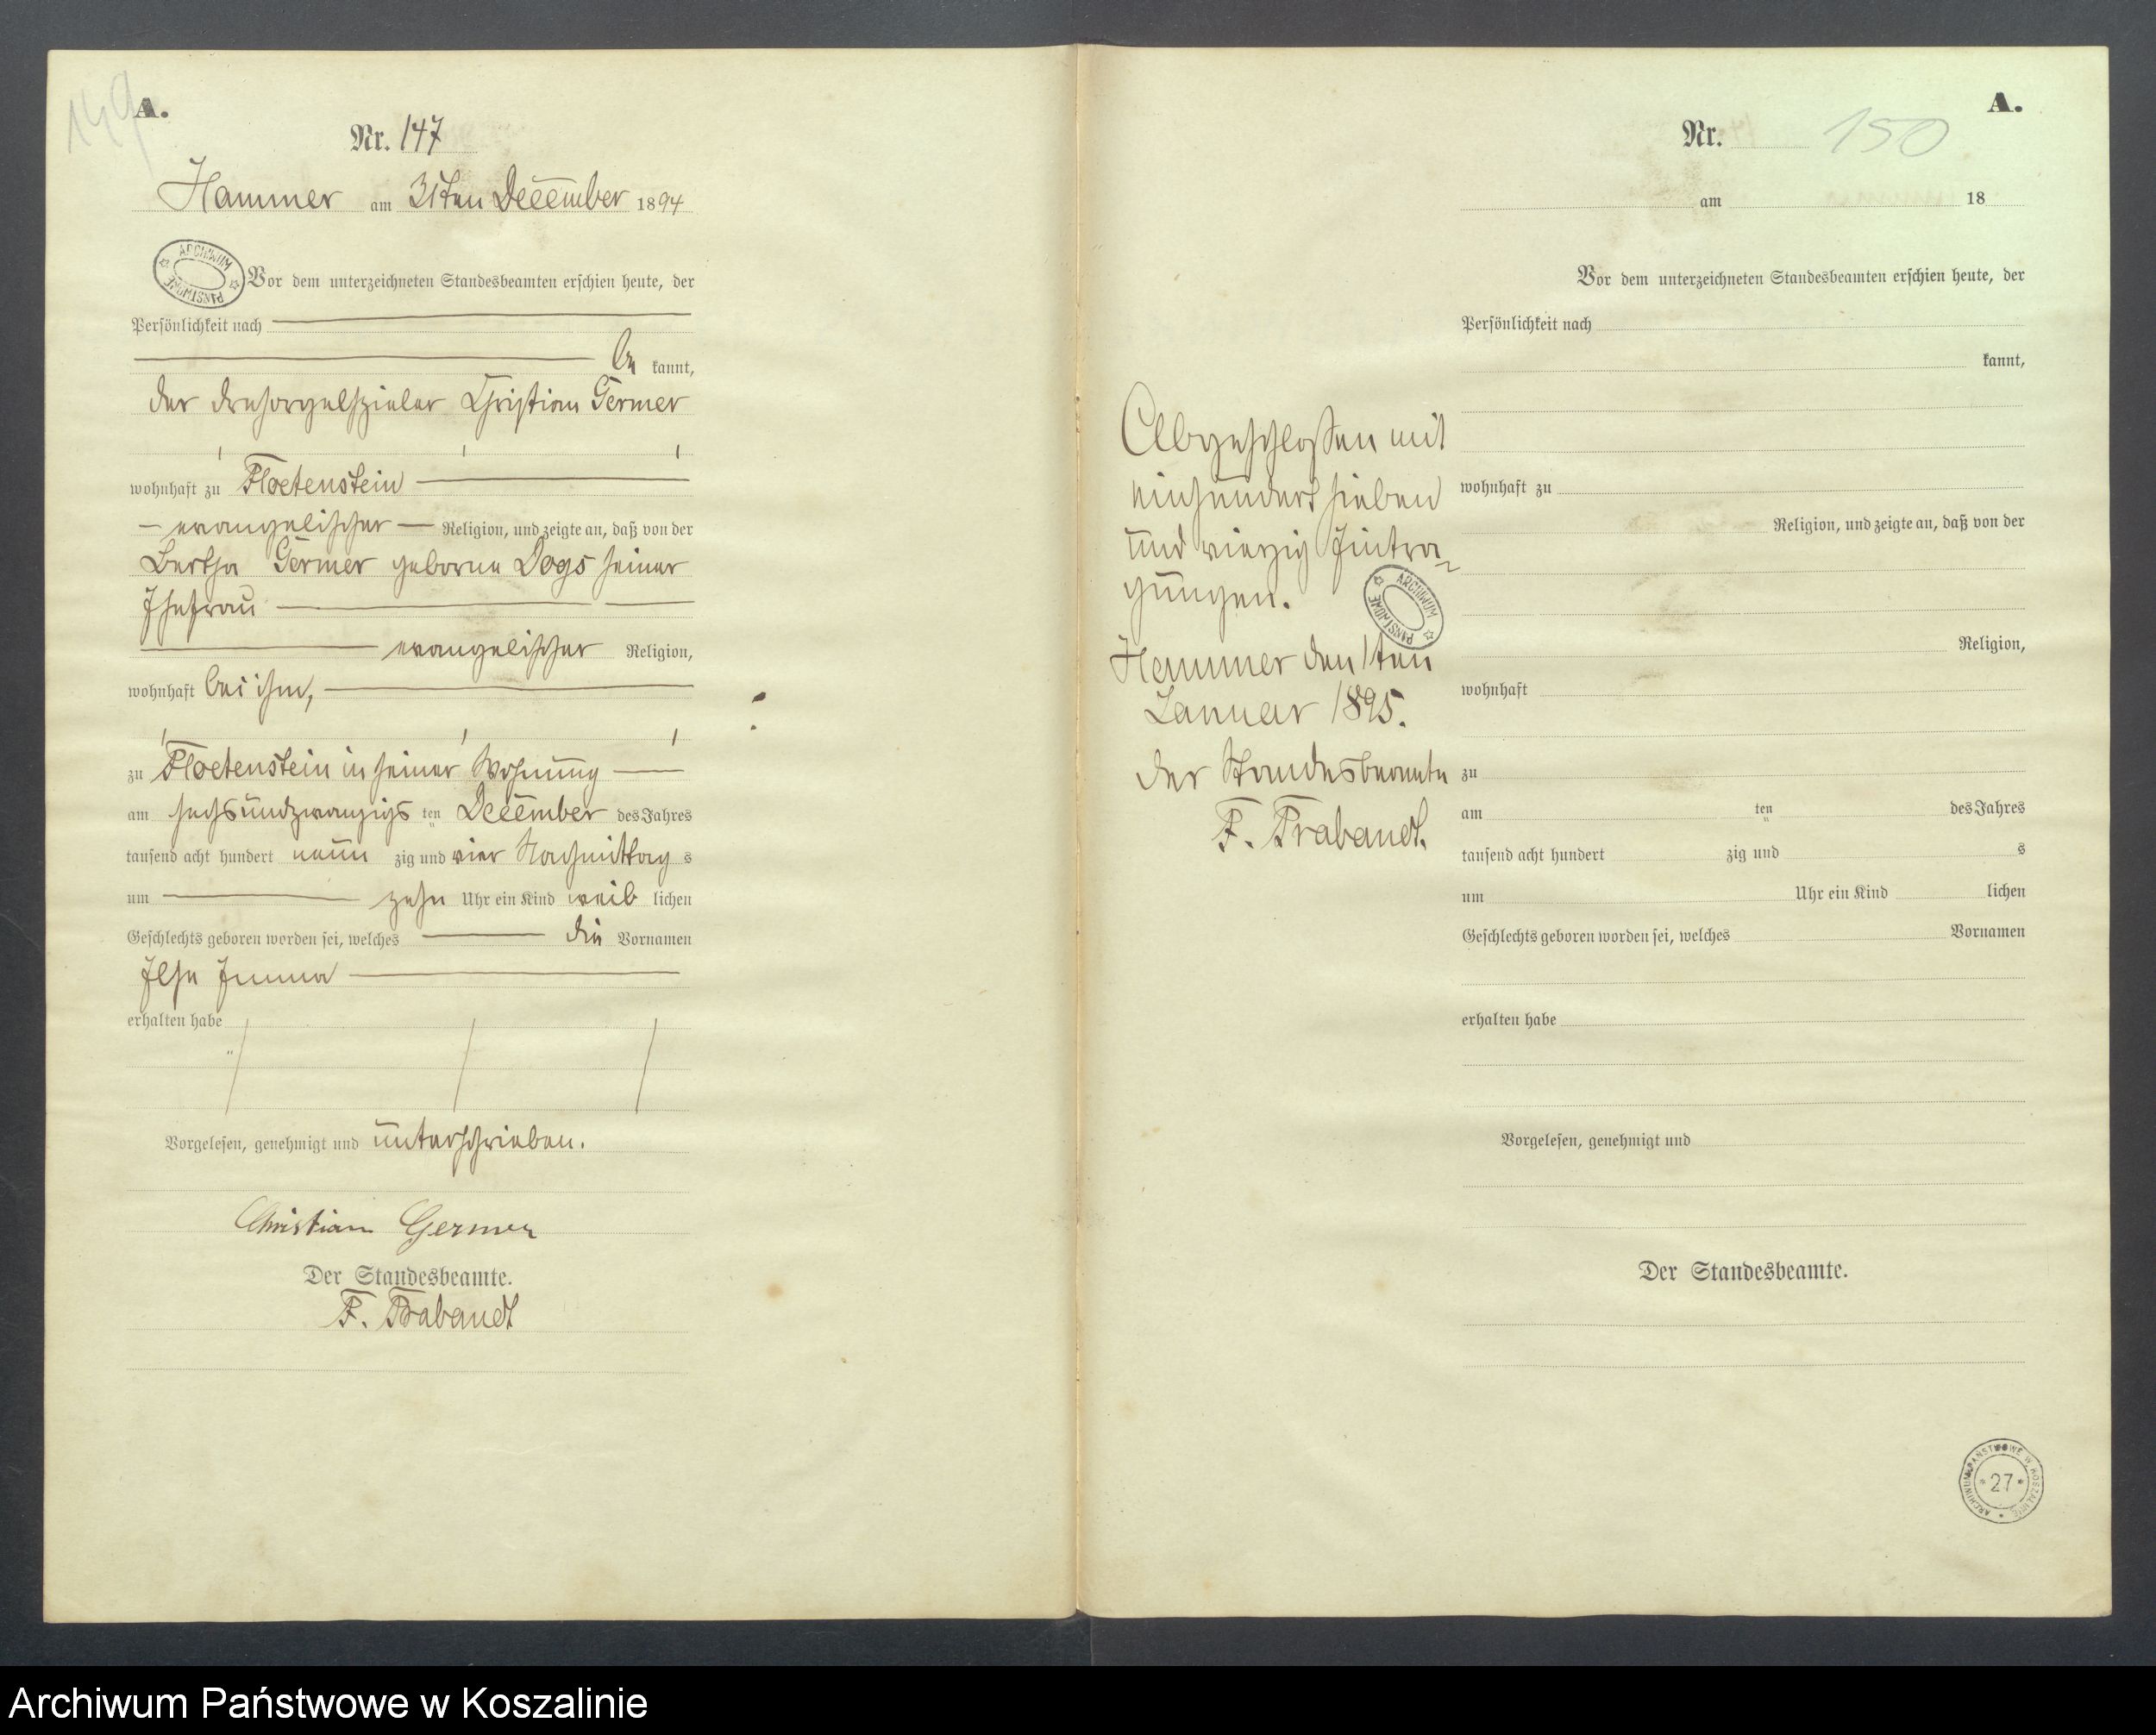 149
A.
Nr. 147
Hammer am 31ten December 1894
ARCHIWUM PAŃSTWOWE
Vor dem unterzeichneten Standesbeamten erschien heute, der
Persönlichkeit nach
be kannt,
der Drehorgelspieler Christian Germer
wohnhaft zu Floetenstein
evangelischer Religion, und zeigte an, daß von der
Bertha Germer geborne Dogs seiner
Ehefrau
evangelischer Religion,
wohnhaft bei ihm,
zu Floetenstein in seiner Wohnung
am sechsundzwanzigs ten December des Jahres
tausend acht hundert neun zig und vier Nachmittag s
um zehn Uhr ein Kind weib lichen
Geschlechts geboren worden sei, welches die Vornamen
Ilse Emma
erhalten habe
Vorgelesen, genehmigt und unterschrieben.
Christian Germer
Der Standesbeamte.
F. Brabandt
A.
Nr. 150
am 18
Vor dem unterzeichneten Standesbeamten erschien heute, der
Persönlichkeit nach
kannt,
wohnhaft zu
Religion, und zeigte an, daß von der
Religion,
wohnhaft
zu
am ten des Jahres
tausend acht hundert zig und s
um Uhr ein Kind lichen
Geschlechts geboren worden sei, welches Vornamen
erhalten habe
Vorgelesen, genehmigt und
Der Standesbeamte.
Abgeschlossen mit
einhundert sieben
und vierzig Eintra-
gungen.
ARCHIWUM PAŃSTWOWE
Hammer den 1ten
Januar 1895.
Der Standesbeamte
F. Brabandt.
ARCHIWUM PAŃSTWOWE W KOSZALINIE
27
Archiwum Państwowe w Koszalinie